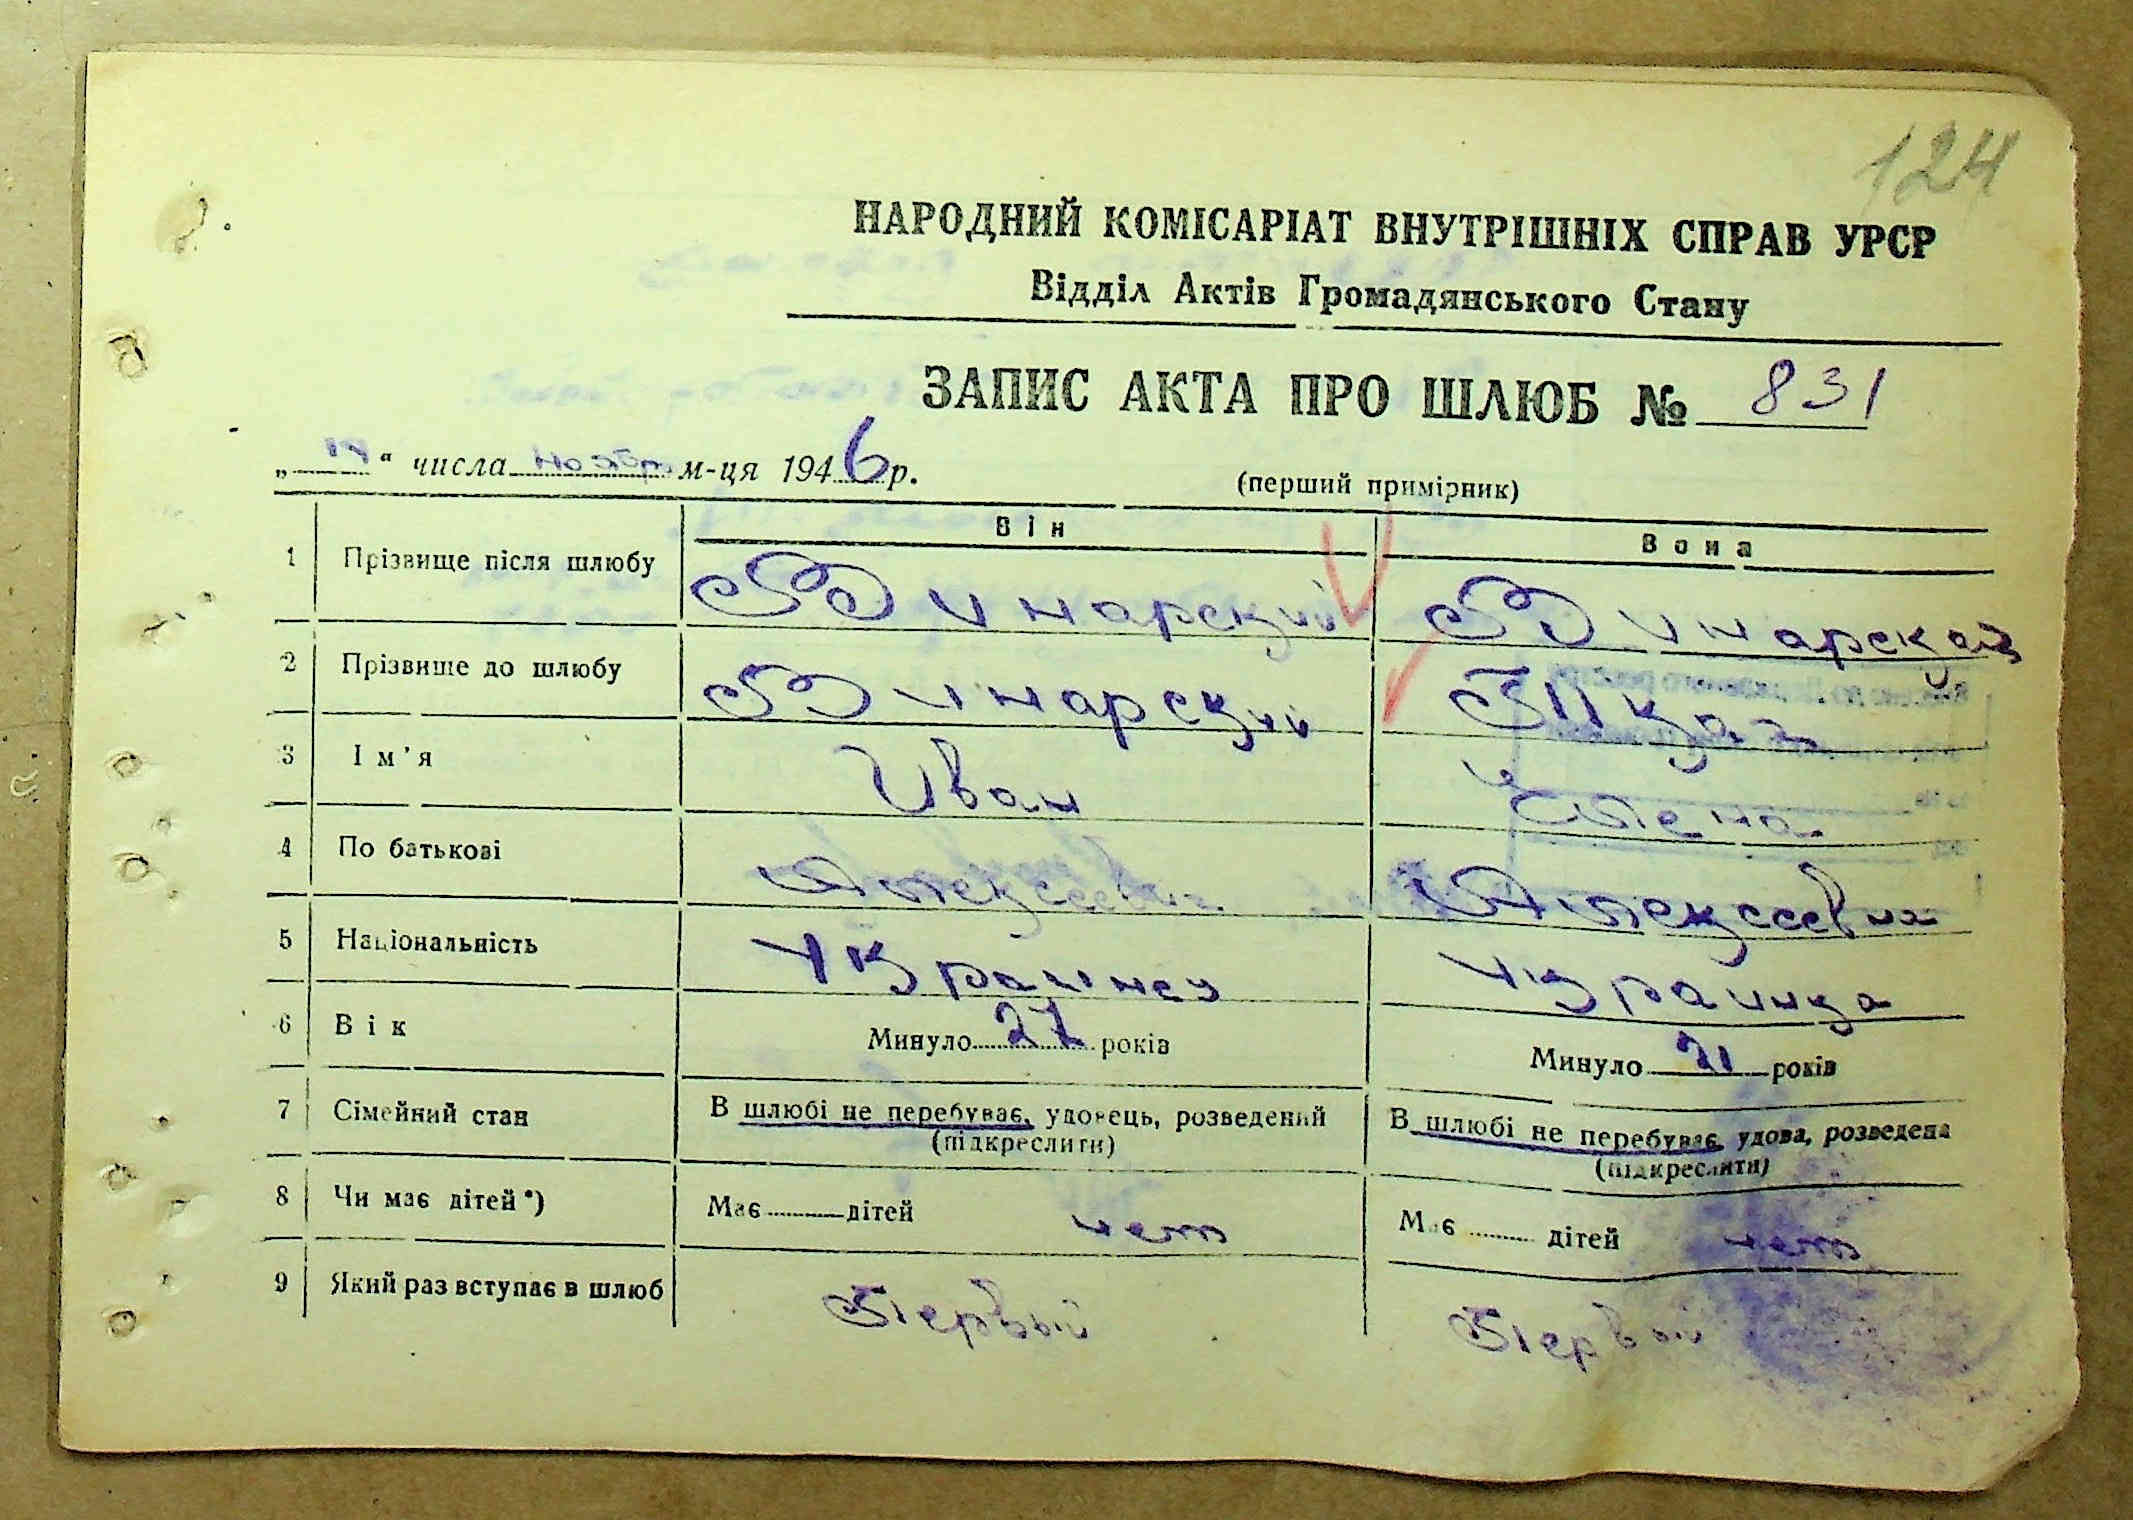 124
НАРОДНИЙ КОМІСАРІАТ ВНУТРІШНІХ СПРАВ УРСР
Відділ Актів Громадянського Стану
ЗАПИС АКТА ПРО ШЛЮБ № 831
„ “ числа нояб м-ця 1946 р. (перший примірник)
Він Вона
1 Прізвище після шлюбу Винарский Винарская
2 Прізвище до шлюбу Винарский
3 Ім'я Иван Елена
4 По батькові Алексеевич Алексеевна
5 Національність Украинец Украинка
6 Вік Минуло 27 років Минуло 21 років
7 Сімейний стан В шлюбі не перебуває, удовець, розведений В шлюбі не перебуває, удова, розведена
(підкреслити) (підкреслити)
8 Чи має дітей*) Має дітей нет Має дітей нет
9 Який раз вступає в шлюб Первый Первый